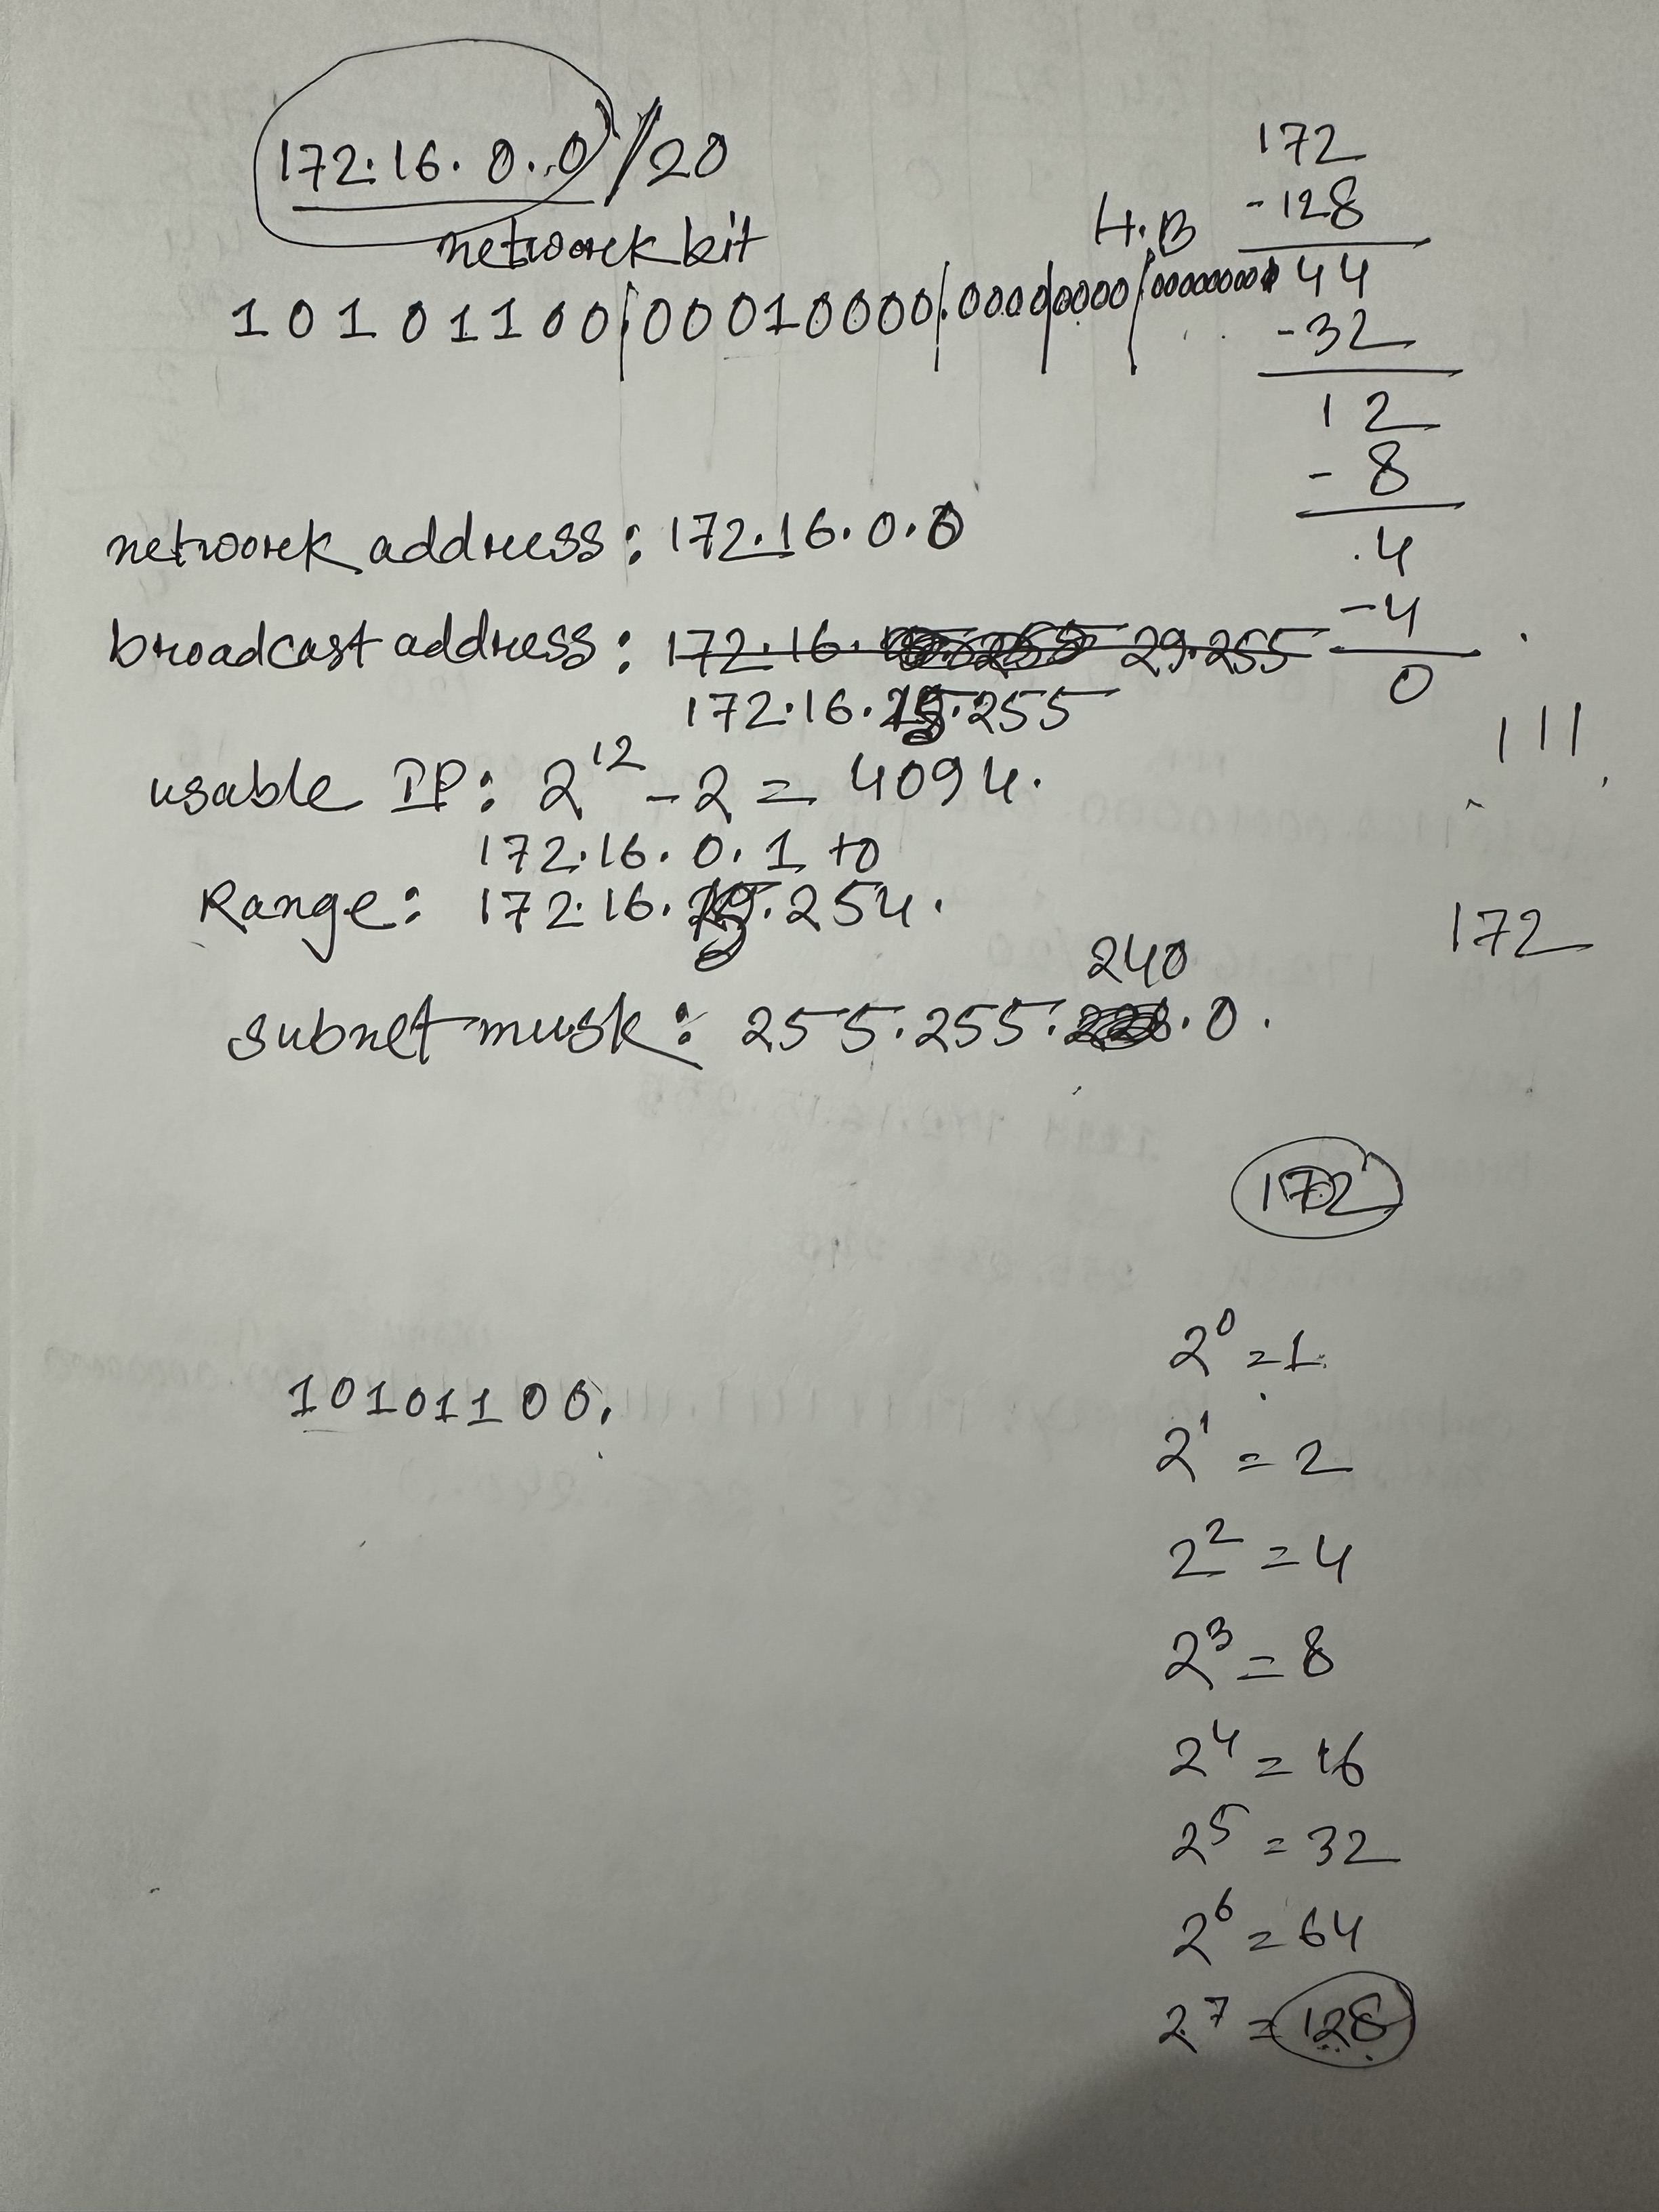 172.16.0.0/20
network bit
H.B
10101100.00010000.00000000.00000000
172
-128
44
-32
12
-8
4
-4
0
network address: 172.16.0.0
broadcast address: 172.16. 29.255
172.16.15.255
usable IP: 2^12 - 2 = 4094.
172.16.0.1 to
Range: 172.16.15.254.
240
subnet musk: 255.255. .0.
111
172
172
10101100.
2^0 = 1
2^1 = 2
2^2 = 4
2^3 = 8
2^4 = 16
2^5 = 32
2^6 = 64
2^7 = 128